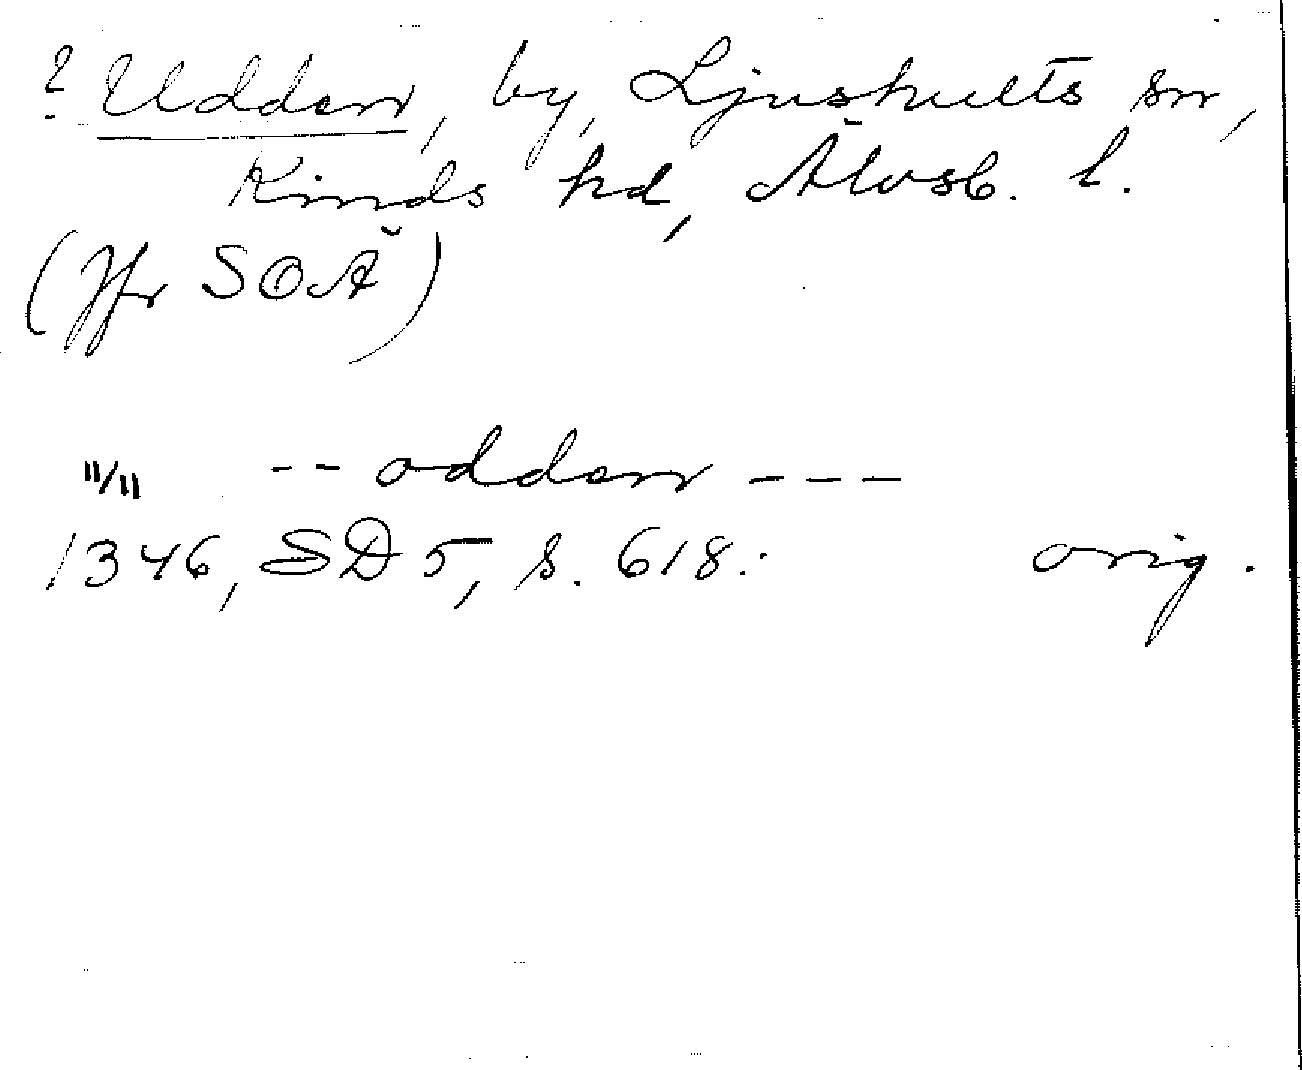 ? Udden, by, Ljushults sn,
Kinds hd, Älvsb. l.
(Jfr SOÄ)
11/11 -- odden ---
1346, SD 5, s. 618: orig.